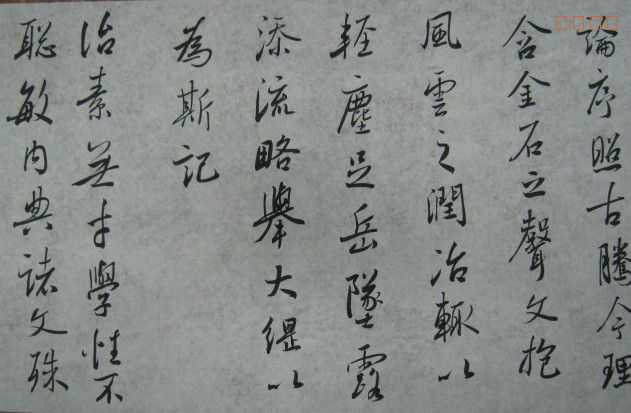 論序照古騰今理
含金石之聲文抱
風雲之潤治輒以
輕塵足岳墜露
添流略舉大綱以
為斯記
治素無才學性不
聰敏內典諸文殊